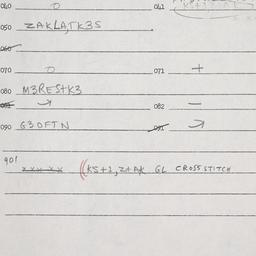 040 O 041
050 ZAKLA,TK3S
060
070 O 071 +
080 M3REStK3
081 → 082 —
090 G3OFTN 091 →
901
((KS+1,Z+AK GL CROSSSTITCH